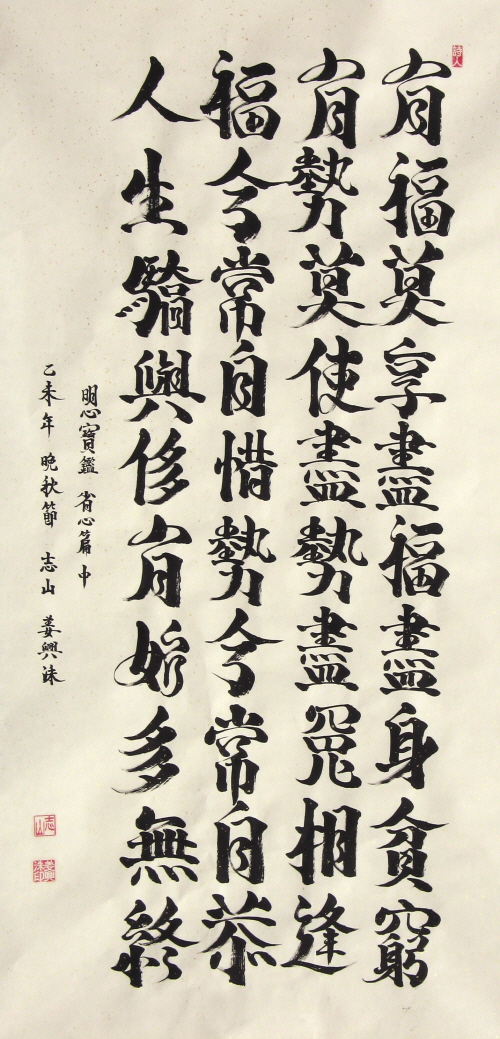 詩人
有福莫享盡福盡身貧窮
有勢莫使盡勢盡冤相逢
福兮常自惜勢兮常自恭
人生驕與侈有始多無終
明心寶鑑 省心篇 中
乙未年 晩秋節 志山 姜興
志山